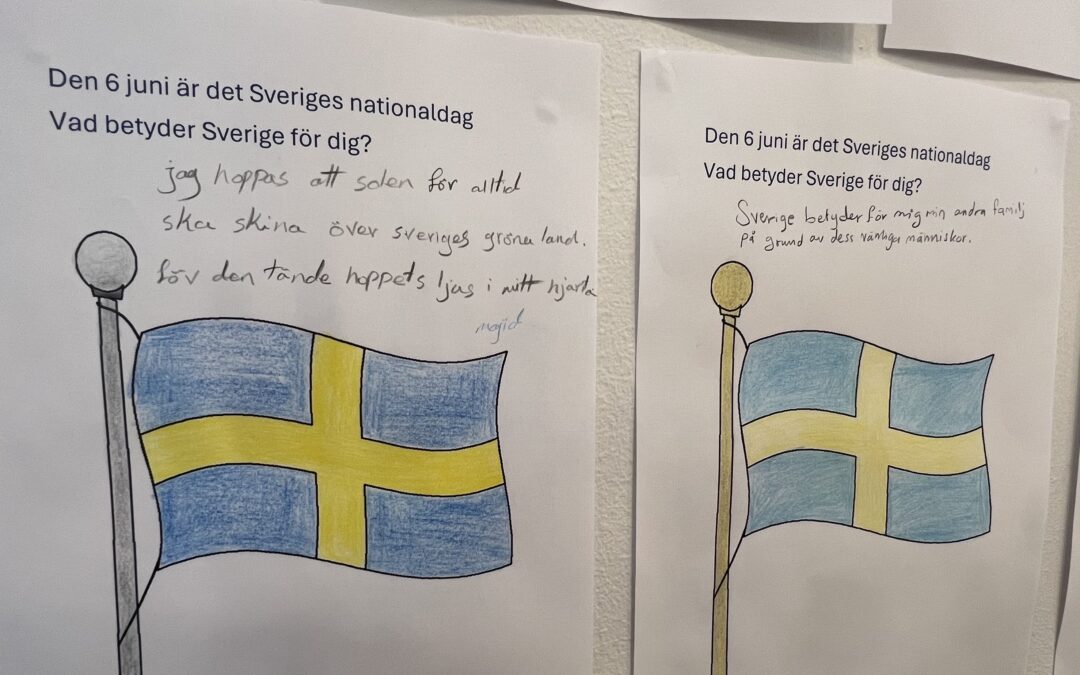 Den 6 juni är det Sveriges nationaldag
Vad betyder Sverige för dig?
jag hoppas att solen för alltid
ska skina över sveriges gröna land.
för den tände hoppets ljus i mitt hjärta
majid
Den 6 juni är det Sveriges nationaldag
Vad betyder Sverige för dig?
Sverige betyder för mig min andra familj
på grund av dess vänliga människor.